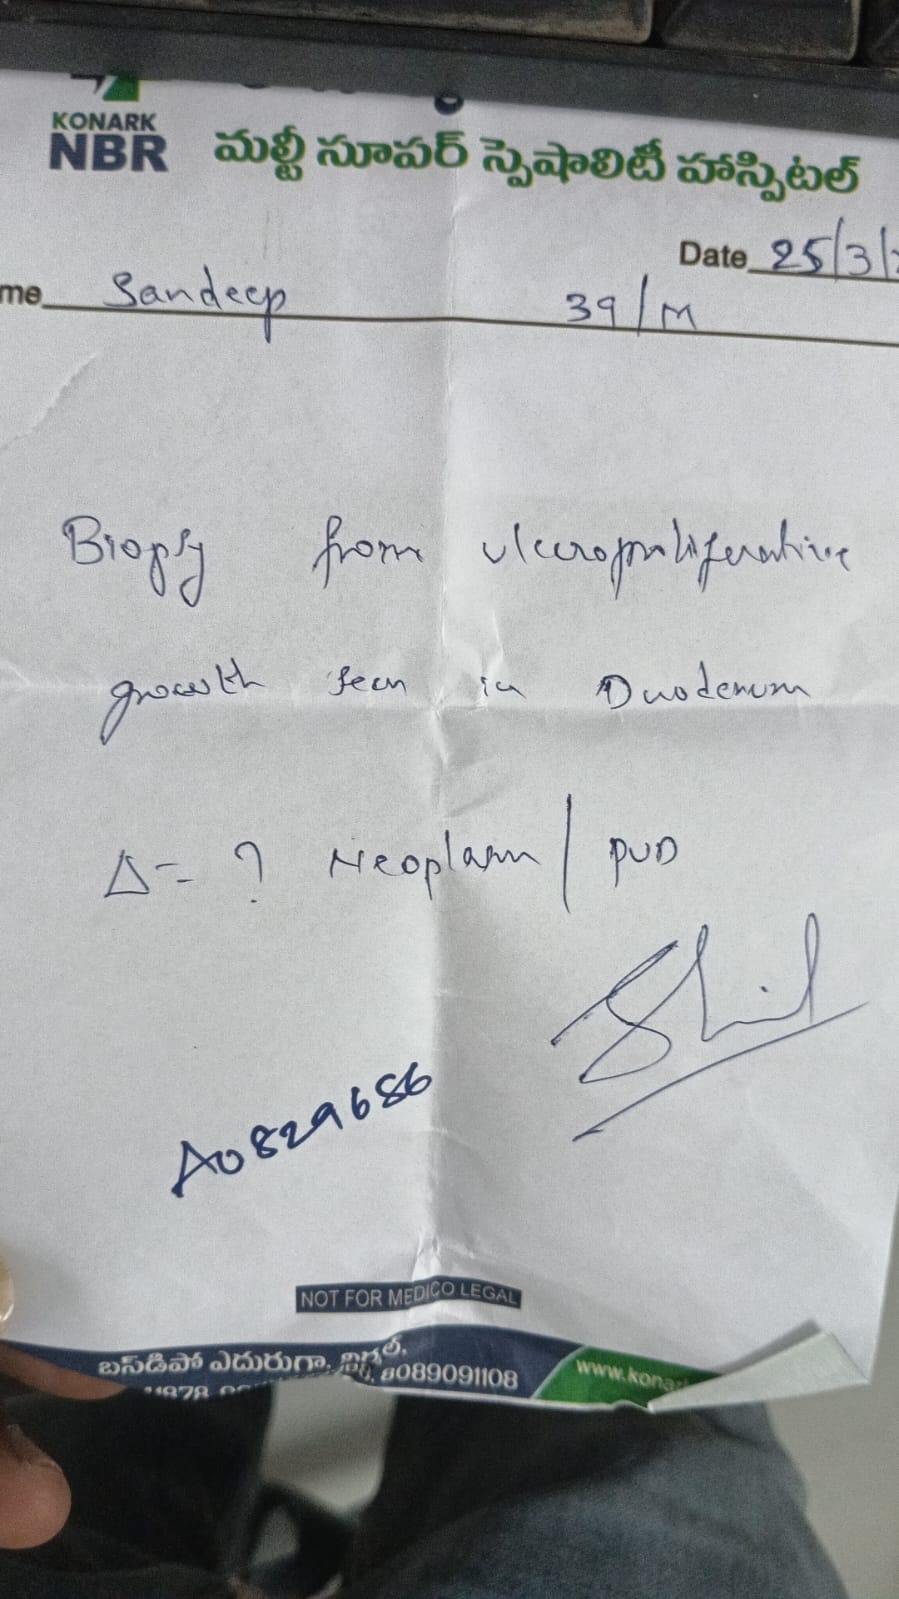 KONARK
NBR మల్టీ సూపర్ స్పెషాలిటీ హాస్పిటల్
Date 25/3/
me Sandeep 39/M
Biopsy from ulceroproliferative
growth seen in Duodenum
Δ= ? Neoplasm / PUD
A0829686
NOT FOR MEDICO LEGAL
బస్‌డిపో ఎదురుగా,
8089091108
www.kona